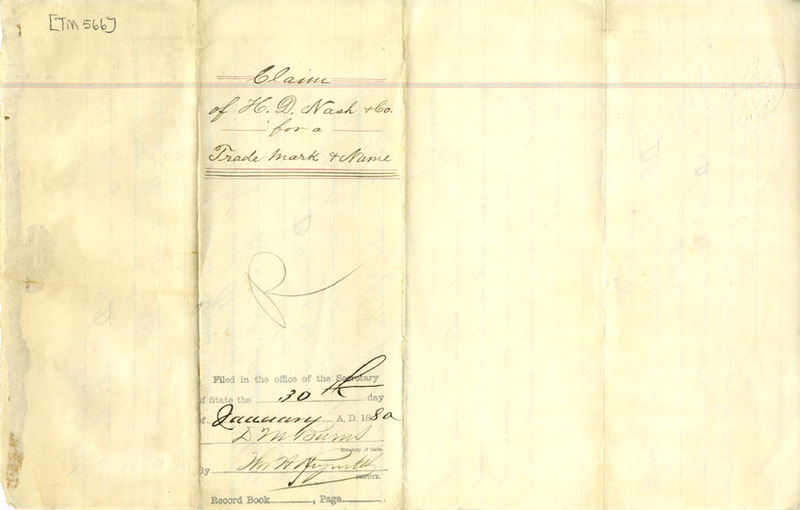 [TM 566]
Claim
of H. D. Nash & Co.
for a
Trade Mark & Name
R
Filed in the office of the Secretary
of State the 30th day
of January A. D. 1880
D M Burns
Secretary of State.
By Thos H Reynolds
DEPUTY.
Record Book , Page .